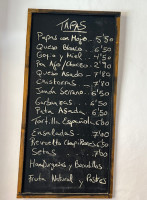 TAPAS
Papas con Mojo 5'50
Queso Blanco 6'50
Gofio y Miel 4'50
Pan Ajo/Chorizo
Queso Asado 7'80
Chistorras
Jamón Serrano 6'50
Garbanzas 6'50
Pata Asada 6'50
Tortilla Española
Ensaladas 7'00
Revuelto
Setas 7'00
Hamburguesas y Bocadillos
Fruta Natural y Postres